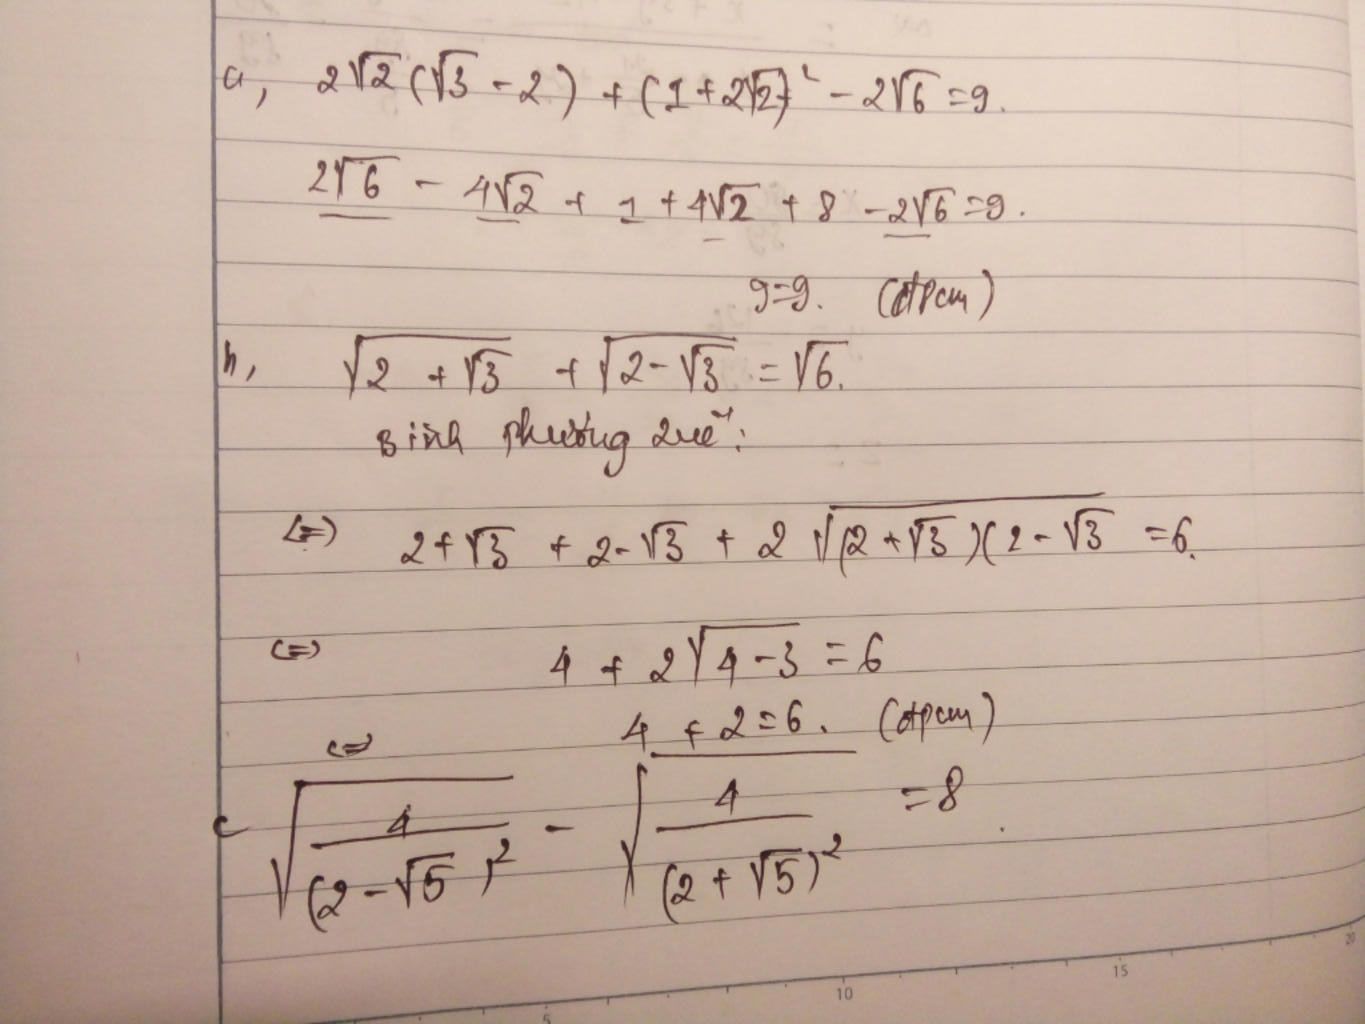 a, 2√2 (√3 - 2) + (1 + 2√2)² - 2√6 = 9.
2√6 - 4√2 + 1 + 4√2 + 8 - 2√6 = 9.
9 = 9. (đpcm)
b, √(2 + √3) + √(2 - √3) = √6.
Bình phương 2 vế:
<=> 2 + √3 + 2 - √3 + 2 √((2 + √3)(2 - √3) = 6.
<=> 4 + 2√(4 - 3) = 6
<=> 4 + 2 = 6. (đpcm)
c √(4/(2 - √5)²) - √(4/(2 + √5)²) = 8
5 10 15 20